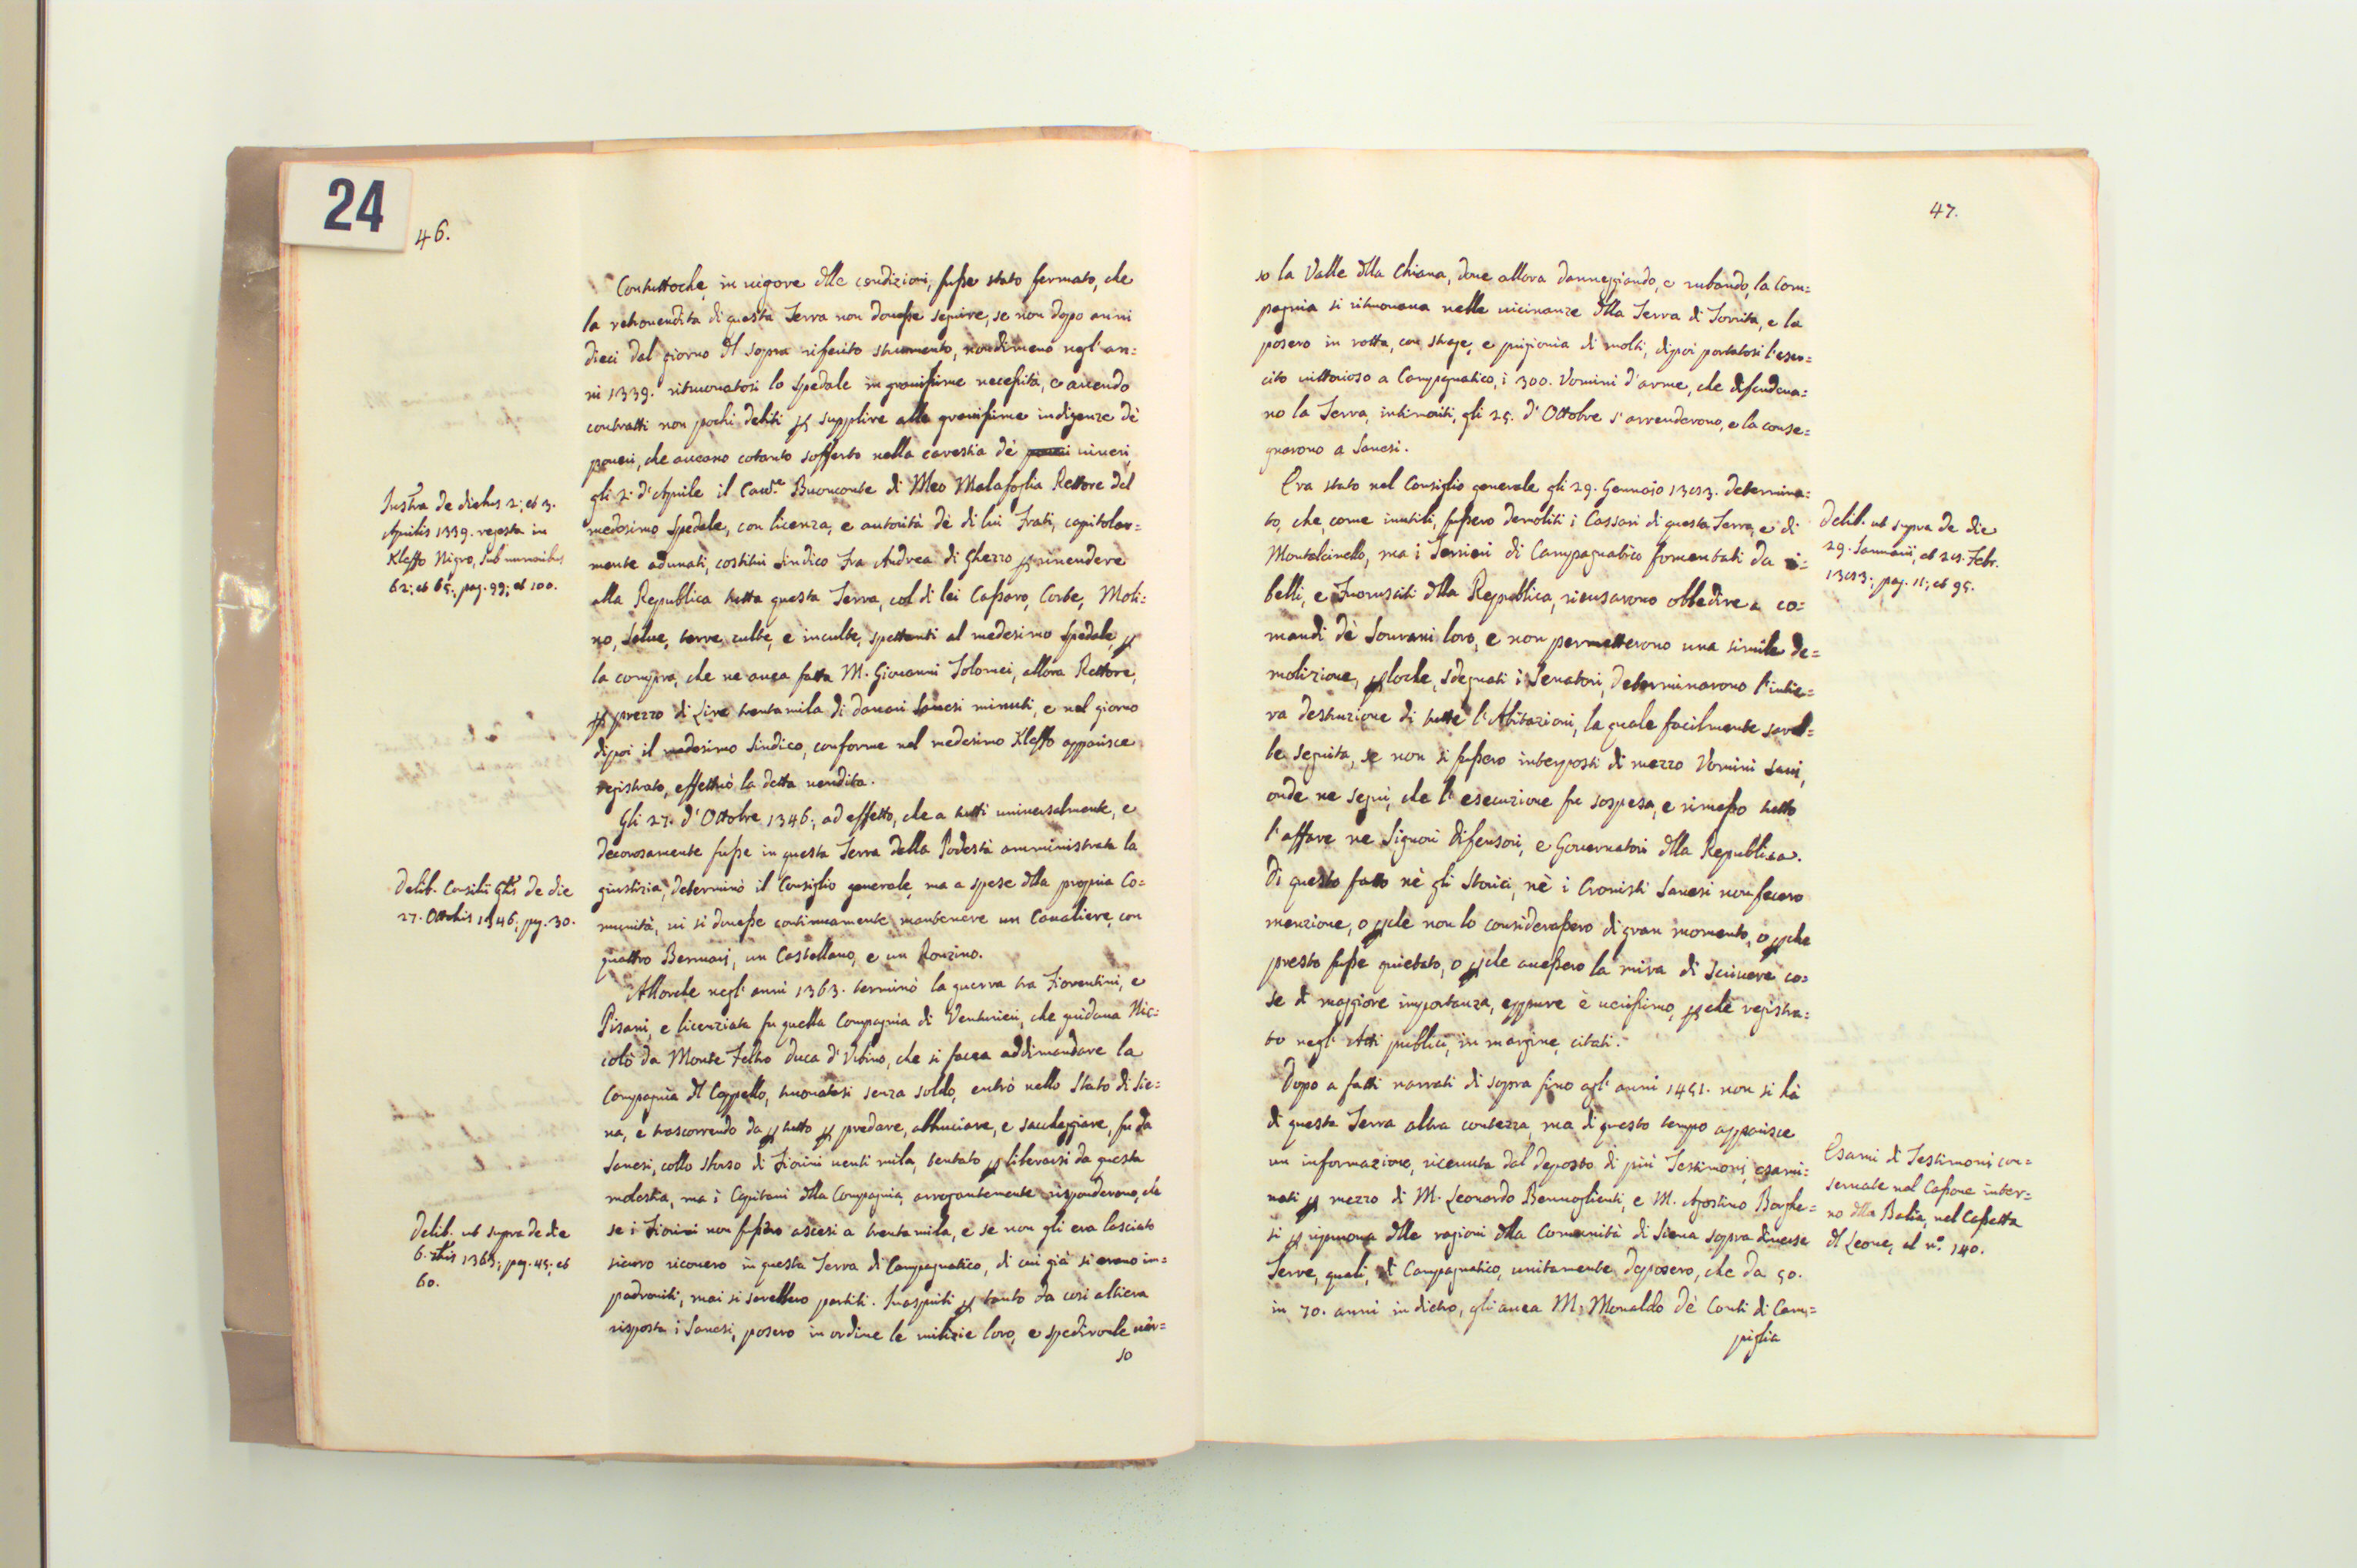 24
46.
Contuttoche, in vigore dlle condizioni, fusse stato fermato, che
la retrovendita di questa Terra non dovesse seguire, se non dopo anni
dieci dal giorno dl sopra riferito strumento, nondimeno negl' an=
ni 1339. ritrovatosi lo Spedale in gravissime necessità, e avendo
contratti non pochi debiti p supplire alle gravissime indigenze dè
poveri, che aveano cotanto sofferto nella carestia dè viveri
gli 2. d'Aprile il Cavd.e Buonconte di Meo Malafoglia Rettore del
medesimo Spedale, con licenza, e autorità dè di lui Frati, capitolar=
mente adunati, costituì Sindico Fra Andrea di Ghezzo p rivendere
alla Republica tutta questa Terra, col di lei Cassaro, Corte, Moli=
no, Selve, terre culte, e inculte, spettanti al medesimo Spedale, p
la compra, che ne avea fatta M. Giovanni Tolomei, allora Rettore,
p prezzo di Lire trentamila di danari Sanesi minuti, e nel giorno
dipoi il medesimo Sindico, conforme nel medesimo Kleffo apparisce
registrato, effettuò la detta vendita.
Gli 27. d'Ottobre 1346., ad effetto, che a tutti universalmente, e
decorosamente fusse in questa Terra della Podestà amministrata la
giustizia, determinò il Consiglio generale, ma a spese dlla propria Co=
munità, vi si dovesse continuamente mantenere un Cavaliere, con
quattro Berrovarj, un Castellano, e un Ronzino.
Allorche negl' anni 1363. terminò la guerra tra Fiorentini, e
Pisani, e licenziata fu quella Compagnia di Venturieri, che guidava Nic=
colò da Monte Feltro Duca d'Urbino, che si facea addimandare la
Compagnia dl Cappello, trovatasi senza soldo, entrò nello Stato di Sie=
na, e trascorrendo da p tutto p predare, abbruciare, e saccheggiare, fu da
Sanesi, collo sborso di Fiorini venti mila, tentato p liberarsi da questa
molestia, ma i Capitani dlla Compagnia, arrogantemente risponderono, che
se i Fiorini non fussero ascesi a trentamila, e se non gli era lasciato
sicuro ricovero in questa Terra di Campagnatico, di cui già si erano im=
padroniti, mai si sarebbero partiti. Inaspriti p tanto da così altiera
risposta i Sanesi, posero in ordine le milizie loro, e spedirole vér=
so
Instra de diebus 2; et 3.
Aprilis 1339. regesta in
Kleffo Nigro, sub numeribus
62; et 65., pag. 99; et 100.
Delib. Consilii Gtis de die
27. Ottobris 1346., pag. 30.
Delib. ut supra de die
6. 1363., pag. 45; et
60.
47.
so la Valle dlla Chiana, dove allora danneggiando, e rubando, la Com=
pagnia si ritrovava nelle vicinanze dlla Terra di Torrita, e la
posero in rotta, con strage, e prigionia di molti, dipoi portatosi l'eser=
cito vittorioso a Campagnatico, i 300. Uomini d'arme, che difendeva=
no la Terra, intimoriti, gli 25. d'Ottobre s'arrenderono, e la conse=
gnarono a Sanesi.
Era stato nel Consiglio generale gli 29. Gennajo 13 3. determina=
to, che, come inutili, fussero demoliti i Cassari di questa Terra, e di
Montalcinello, ma i Terrieri di Campagnatico fomentati da ri=
belli, e Fuorusciti dlla Republica, ricusarono obbedire a co=
mandi dè Sovrani loro, e non permetterono una simile de=
molizione, p loche, sdegnati i Senatori, determinarono l'intie=
ra destruzione di tutte l'Abitazioni, la quale facilmente sareb=
be seguita, se non si fussero interposti di mezzo Uomini savi,
onde ne seguì, che l'esecuzione fu sospesa, e rimesso tutto
l'affare ne Signori Difensori, e Governatori dlla Republica.
Di questo fatto nè gli Storici, nè i Cronisti Sanesi non fecero
menzione, o pche non lo considerassero di gran momento, o pche
presto fusse quietato, o pche avessero la mira di scrivere co=
se di maggiore importanza, eppure è verissimo, pchè registra=
to negl' Atti publici, in margine, citati.
Dopo a fatti narrati di sopra fino agl' anni 1451. non si hà
di questa Terra altra contezza, ma di questo tempo apparisce
un informazione, ricevuta dal deposto di più Testimonj, esami=
nati p mezzo di M. Leonardo Benvoglienti, e M. Agostino Borghe=
si p riprova dlle ragioni dlla Comunità di Siena sopra diverse
Terre, quali, di Campagnatico, unitamente deposero, che da 50.
in 70. anni in dietro, gli avea M. Monaldo dè Conti di Cam=
piglia
Delib. ut supra de die
29. Januarii, et 25. Febr.
13 3., pag. 11; et 95.
Esami di Testimonj con=
servate nel Cassone inter=
no dlla Balia, nel Cassetta
dl Leone, al n.o 140.